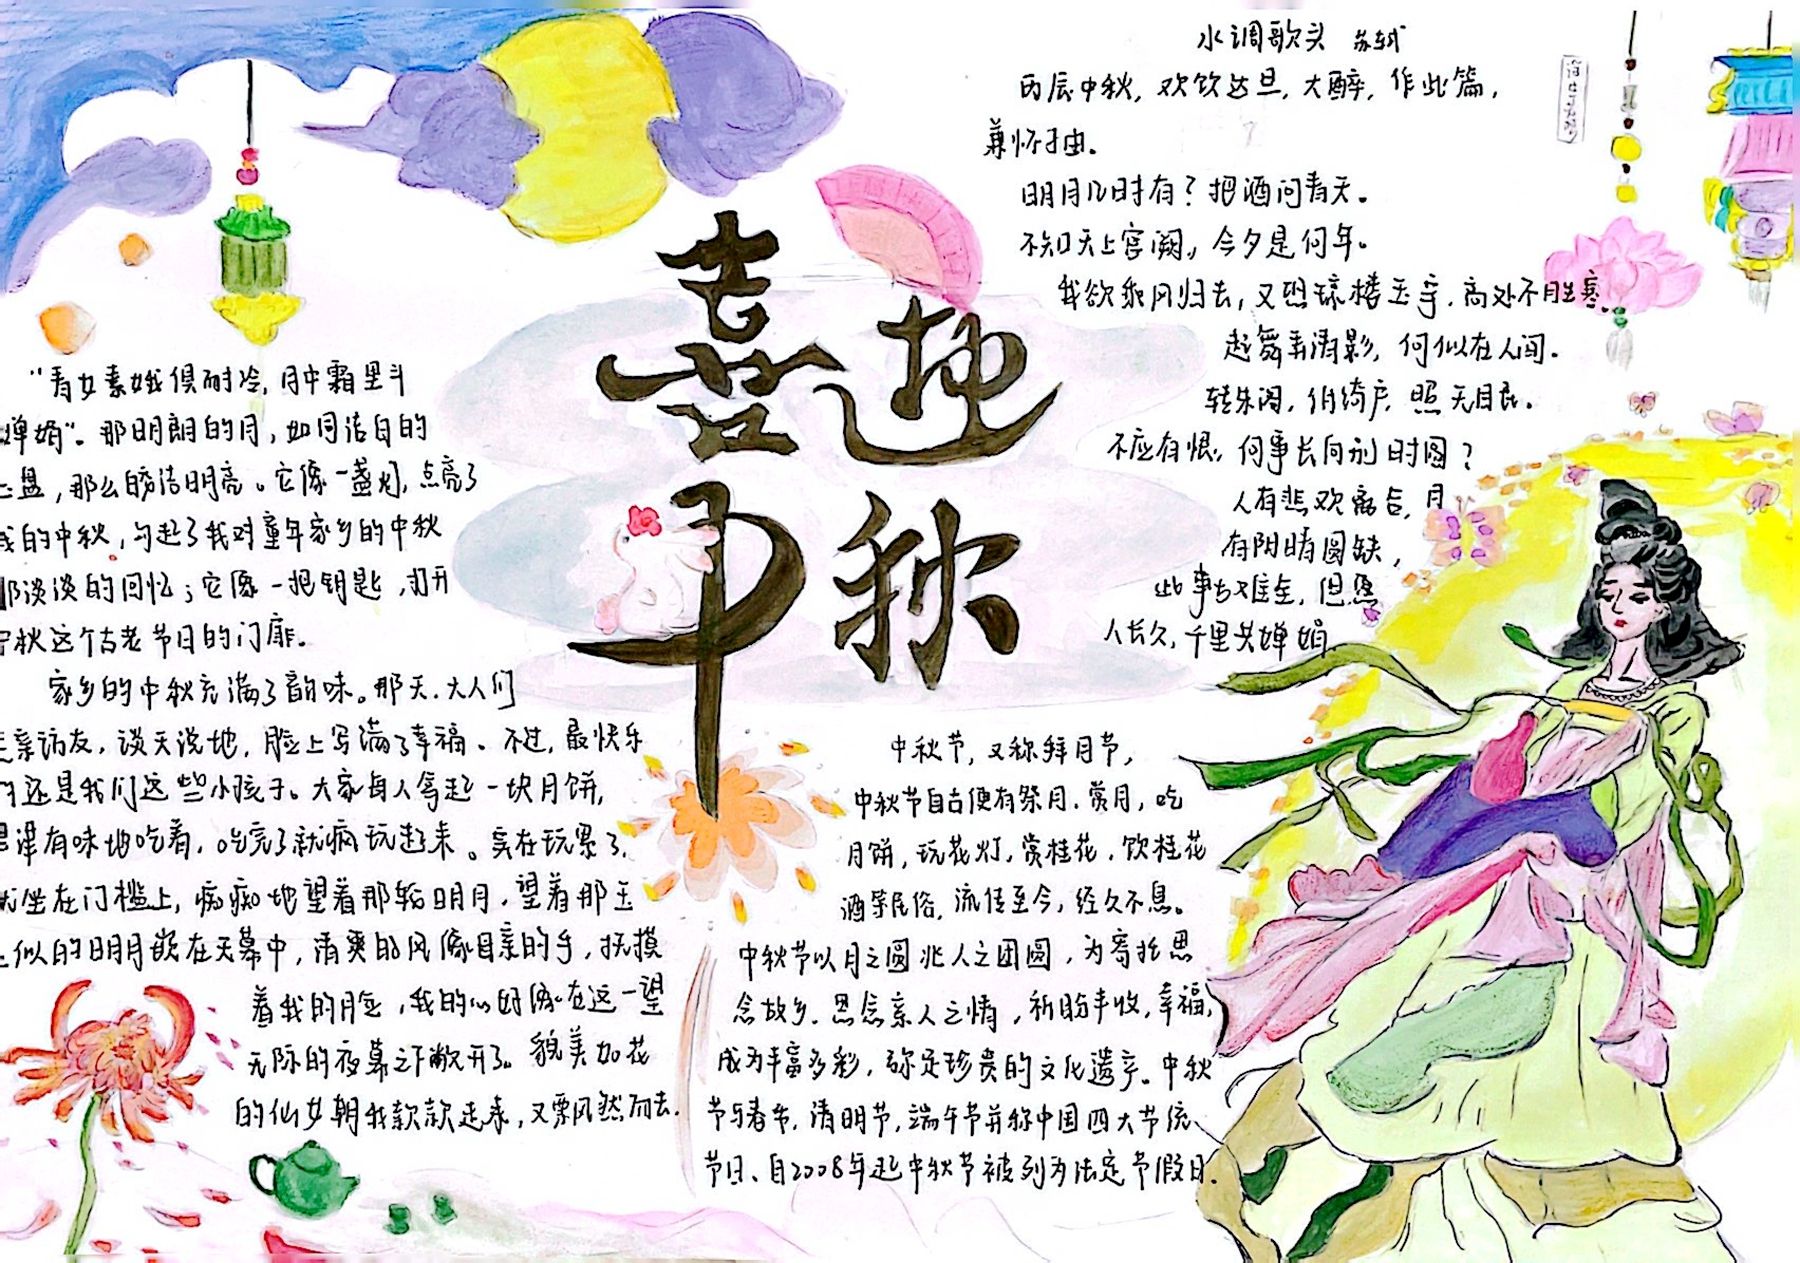 喜迎
中秋
水调歌头 苏轼
丙辰中秋,欢饮达旦,大醉,作此篇,
兼怀子由。
明月几时有?把酒问青天。
不知天上宫阙,今夕是何年。
我欲乘风归去,又恐琼楼玉宇,高处不胜寒.
起舞弄清影,何似在人间.
转朱阁,低绮户,照无眠.
不应有恨,何事长向别时圆?
人有悲欢离合,月
有阴晴圆缺,
此事古难全,但愿
人长久,千里共婵娟
“青女素娥俱耐冷,月中霜里斗
婵娟”。那明朗的月,如同洁白的
盘,那么皎洁明亮。它像一盏灯,点亮了
我的中秋,勾起了我对童年家乡的中秋
那淡淡的回忆;它像一把钥匙,打开
中秋这个古老节日的门扉。
家乡的中秋充满了韵味。那天,大人们
亲访友,谈天说地,脸上写满了幸福。不过,最快乐
的还是我们这些小孩子。大家每人拿起一块月饼,
津有味地吃着,吃完了就疯玩起来。实在玩累了,
就坐在门槛上,痴痴地望着那轮明月,望着那玉
似的明月嵌在天幕中,清爽的风像母亲的手,抚摸
着我的脸,我的心好像在这一望
无际的夜幕之下敞开了。貌美如花
的仙女朝我款款走来,又飘风然而去.
中秋节,又称拜月节,
中秋节自古便有祭月、赏月,吃
月饼,玩花灯,赏桂花,饮桂花
酒等民俗,流传至今,经久不息。
中秋节以月之圆兆人之团圆,为寄托思
念故乡,思念亲人之情,祈盼丰收,幸福,
成为丰富多彩,弥足珍贵的文化遗产。中秋
节与春节,清明节,端午节并称中国四大节统
节日、自2008年起中秋节被列为法定节假日.